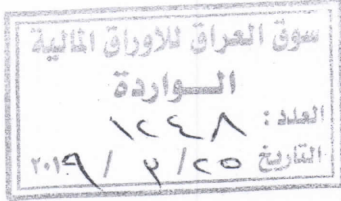 سوق العراق للاوراق المالية
الـــواردة
العدد : ١٢٤٨
التاريخ ٢٥ / ٣ / ٢٠١٩